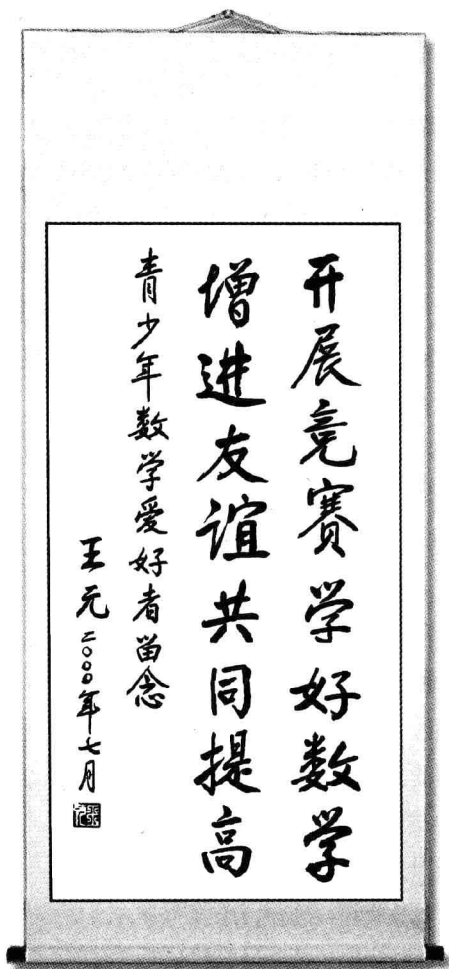 开展竞赛学好数学
增进友谊共同提高
青少年数学爱好者留念
王元二〇〇〇年七月